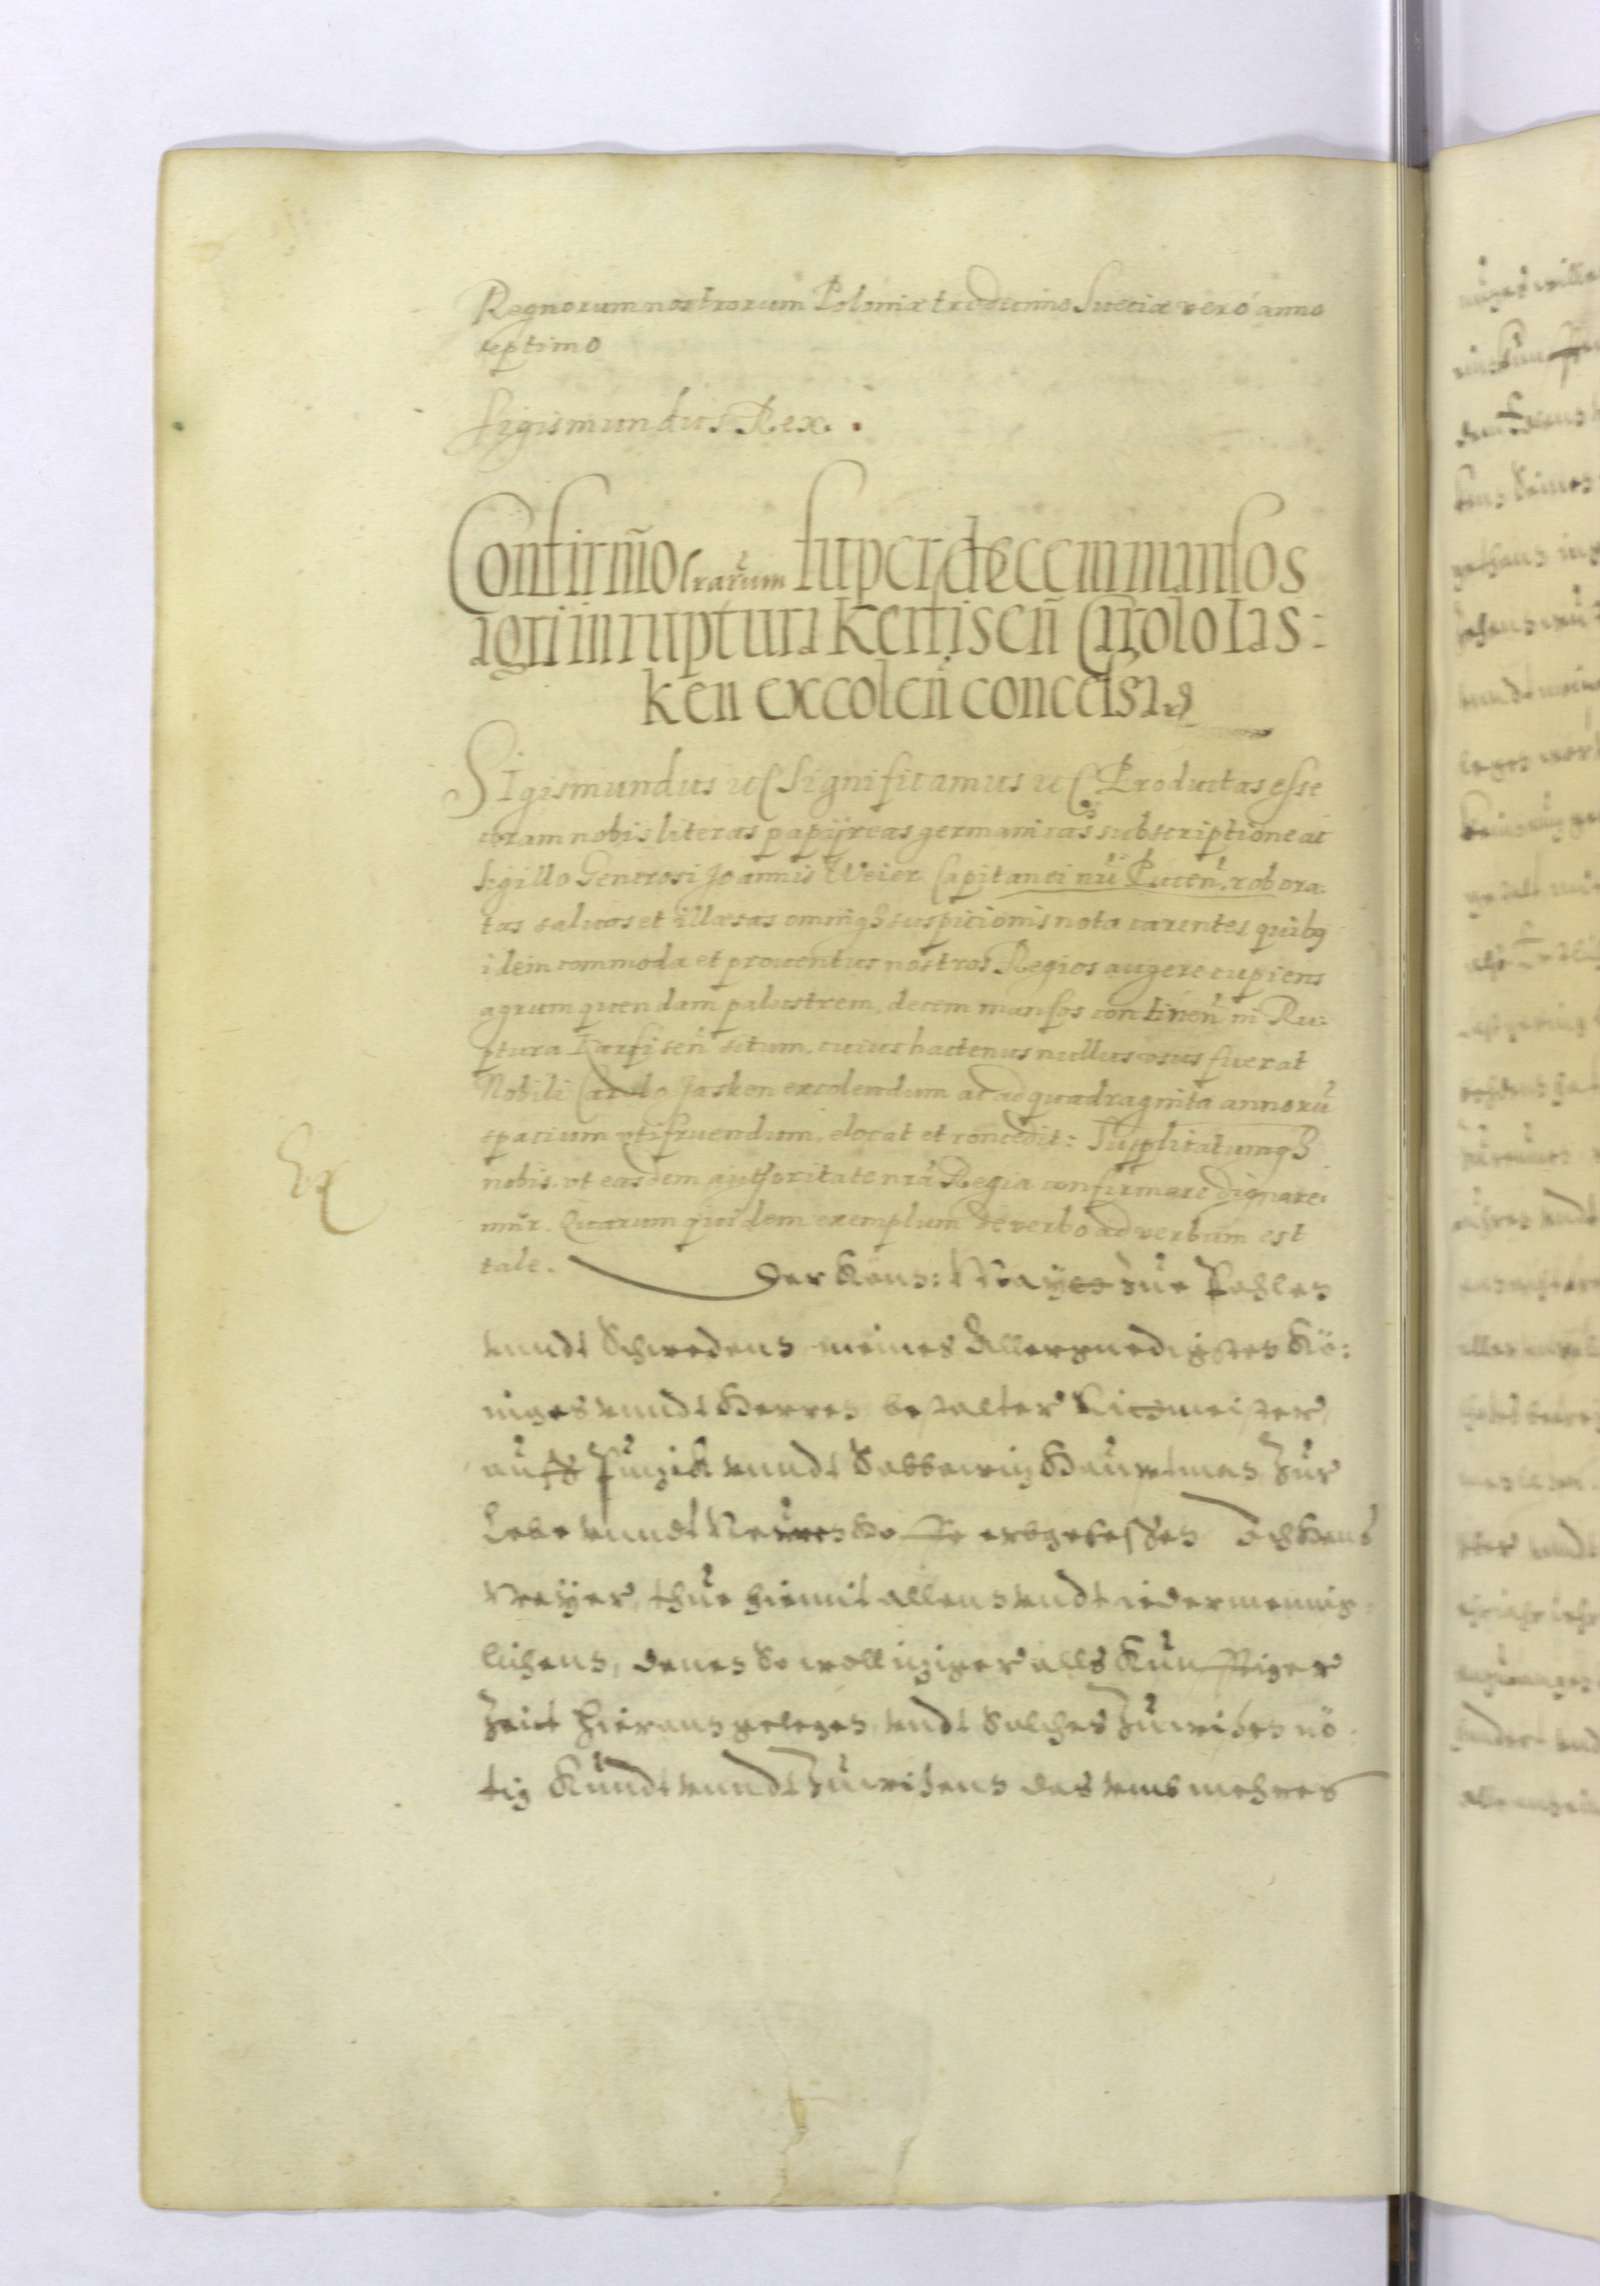 Regnorum nostrorum Poloniæ tredecimo Sueciæ vero anno
septimo
Sigismundus Rex.
Confirm̃o lrarum super decem mansos
agri in ruptura Kerfisen̄ Carolo Ias:
ken excolen̄ concessa
SIgismundus etc Significamus etc Productas esse
coram nobis literas papijreas germanicas subscriptione ac
sigillo Generosi Joannis Weier Capitanei nri Pucen̄, robora:
tas saluas et illæsas omniq3 suspicionis nota carentes quibq
idem commoda et prouentus nostros Regios augere cupiens
agrum quendam palustrem, decem mansos continen̄ in Ru:
ptura Karfisen̄ situm, cuius hactenus nullus usus fuerat
Nobili Carolo Jasken excolendum ac ad quadraginta annorū
spacium vtifruendum, elocat et concedit: Supplicatumq3
nobis, vt easdem authoritate nrā Regia confirmare dignare:
mur. Quarum quidem exemplum de verbo ad verbum est
tale. Der Kön: Mayt zue Pohlen
vnndt Schweden meines Allergnedigsten Kö:
niges vnndt Herren bestalter Ritmeister,
auff Putzick vnndt Sobbowitz Haubtman, zur
Lebe vnndt erbgesessen Ich Hans
Weyer, thue hiemit allen vndt iedermennig:
lichen, denen so woll itziger alls Künfftiger
Zeit hieran gelegen, vndt solches zuwissen nö:
tig Kundt vnndt zuwissen das mehres
Ex